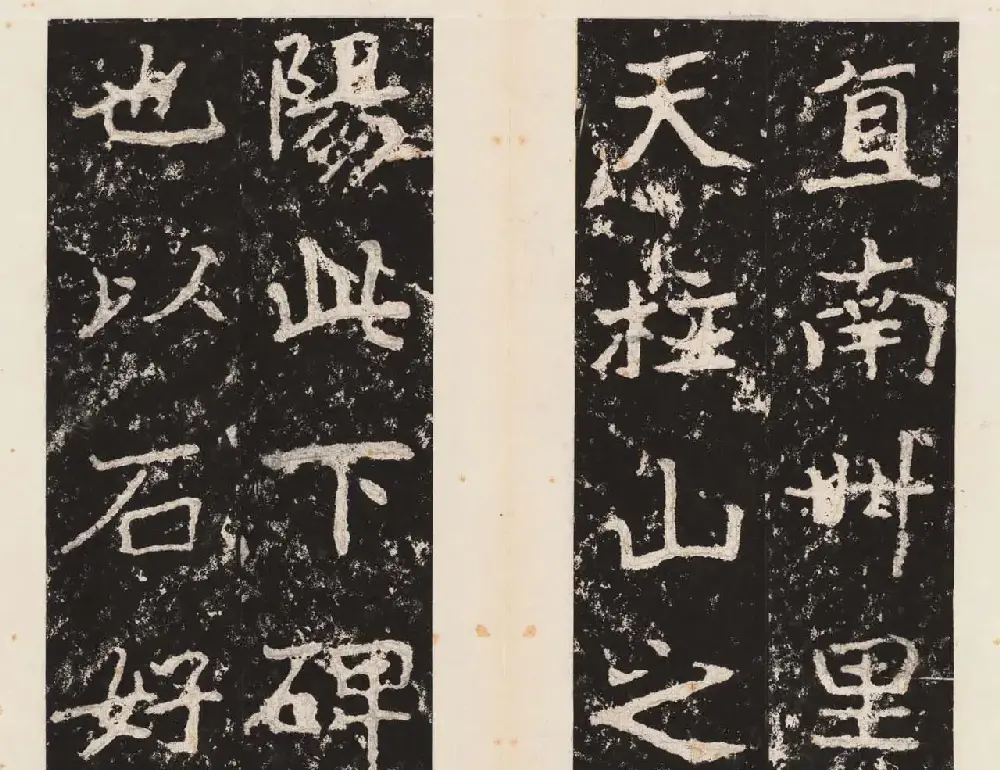 直南卌里
天柱山之
陽此下碑
也以石好